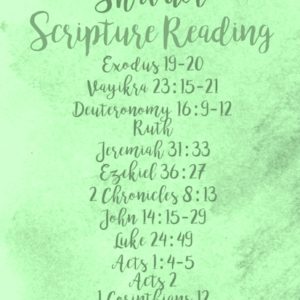 Scripture Reading
Exodus 19-20
Vayikra 23:15-21
Deuteronomy 16:9-12
Ruth
Jeremiah 31:33
Ezekiel 36:27
2 Chronicles 8:13
John 14:15-29
Luke 24:49
Acts 1:4-5
Acts 2
1 Corinthians 12